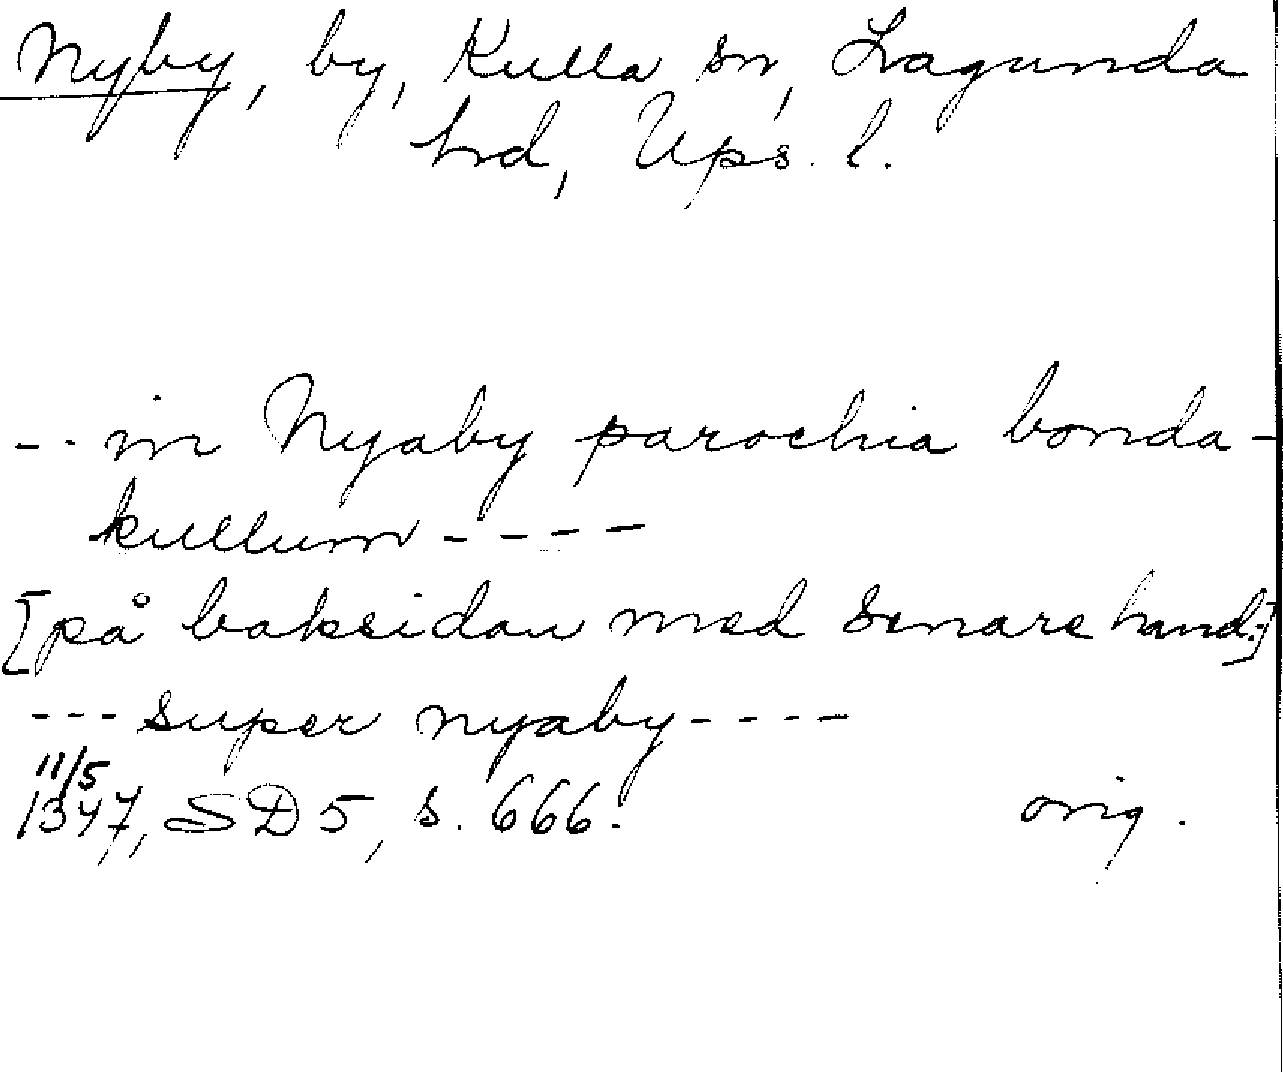 Nyby, by, Kulla sn, Lagunda
hd, Ups. l.
-- in Nyaby parochia bonda-
kullum ----
[på baksidan med senare hand:]
--- super nyaby ----
11/5
1347, SD 5, s. 666.
orig.